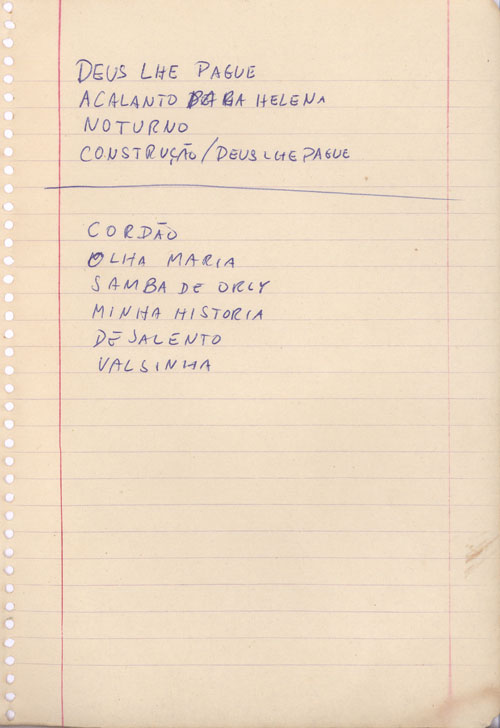 DEUS LHE PAGUE
ACALANTO PARA HELENA
NOTURNO
CONSTRUÇÃO/DEUS LHE PAGUE
CORDÃO
OLHA MARIA
SAMBA DE ORLY
MINHA HISTORIA
DESALENTO
VALSINHA